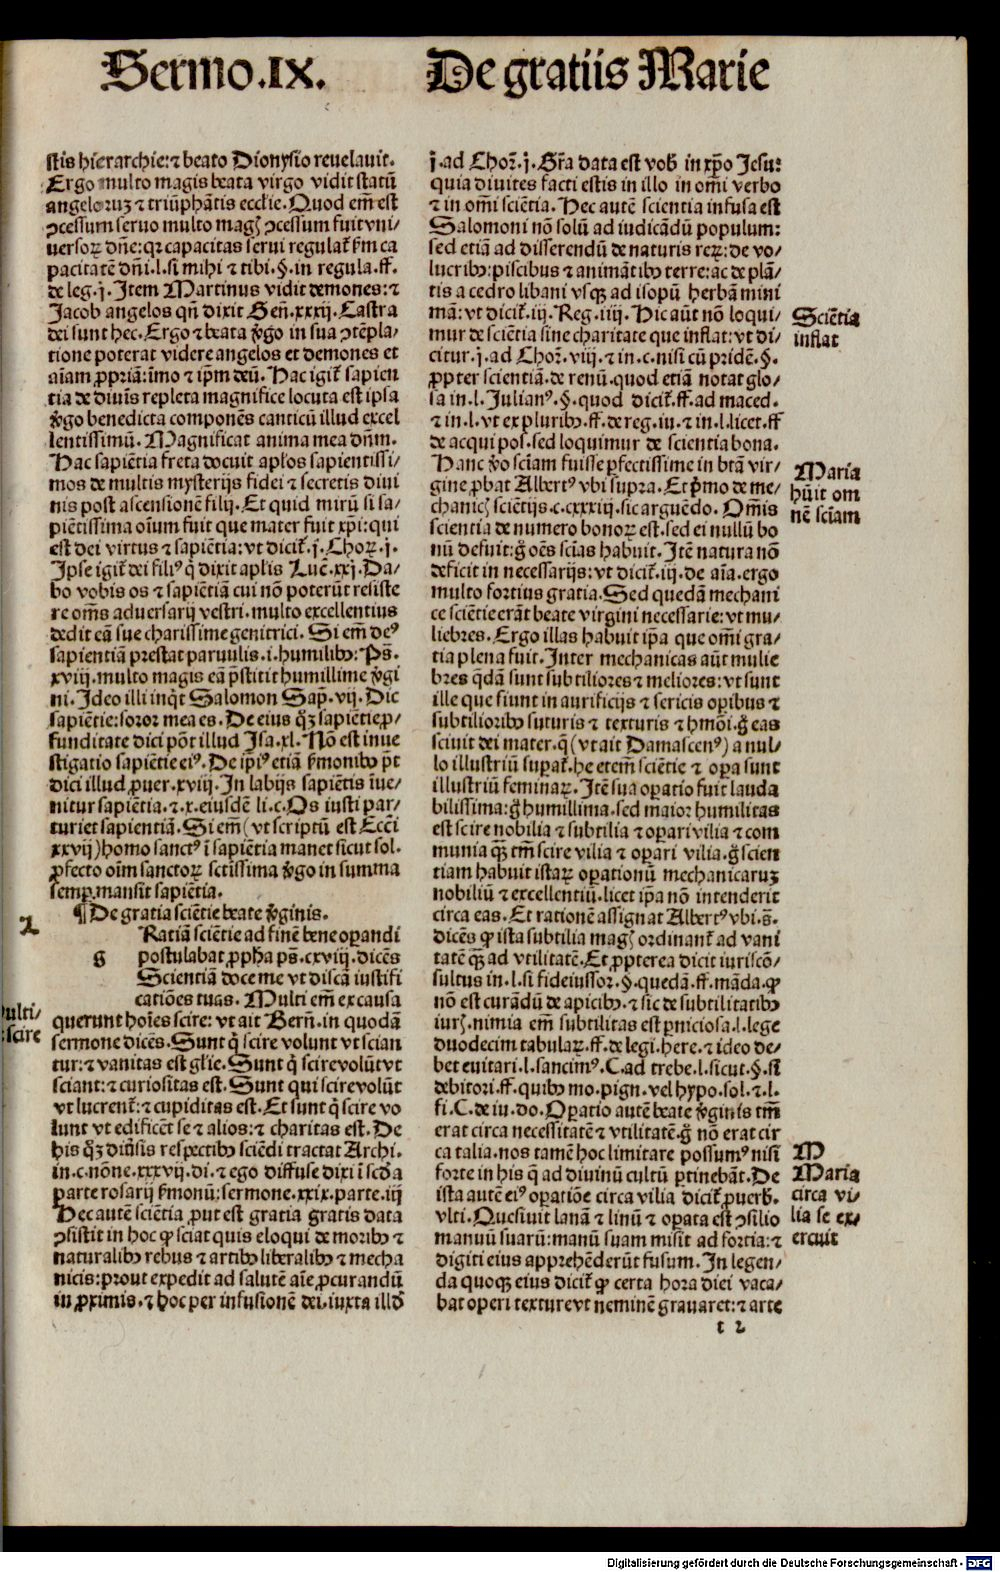 Sermo .IX. De gratiis Marie
stis hierarchie: ⁊ beato Dionysio reuelauit.
Ergo multo magis beata virgo vidit statū
angeloruꝫ ⁊ triūphātis ecclie. Quod em̄ est
ꝯcessum seruo multo magꝭ ꝯcessum fuit vni/
uersoꝝ dn̄e: qꝛ capacitas serui regulat᷑ ẜm ca
pacitatē dn̄i. l. si mihi ⁊ tibi. §. in regula. ff.
de leg. j. Item Martinus vidit demones: ⁊
Jacob angelos qn̄ dixit Gen̄. xxxij. Castra
dei sunt hec. Ergo ⁊ beata v̓go in sua ꝯtēpla/
tione poterat videre angelos et demones et
aīam ꝓpriā: īmo ⁊ ip̄m deū. Hac igit᷑ sapien
tia de diuīs repleta magnifice locuta est ipsa
v̓go benedicta componēs canticū illud excel
lentissimū. Magnificat anima mea dn̄m.
Hac sapiētia freta docuit aplōs sapientissi/
mos de multis mysterijs fidei ⁊ secretis diui
nis post ascensionē filij. Et quid mirū si sa/
piētissima oīum fuit que mater fuit xp̄i: qui
est dei virtus ⁊ sapiētia: vt dicit᷑. j. Choꝝ. j.
Ipse igit᷑ dei filiꝰ q̇ dixit aplīs Luc̄. xxj. Da/
bo vobis os ⁊ sapientiā cui nō poterūt resiste
re om̄s aduersarij vestri. multo excellentius
dedit eā sue charissime genitrici. Si em̄ deꝰ
sapientiā prestat paruulis. i. humilibꝰ: Ps̄.
xviij. multo magis eā p̄stitit humillime v̓gi
ni. Ideo illi inq̇t Salomon Sap̄. vij. Dic
sapiētie: soror mea es. De eius q̊ꝫ sapiētie ꝓ/
funditate dici pōt illud Isa. xl. Nō est inue
stigatio sapiētie eiꝰ. De ip̄iꝰ etiā ẜmonibꝰ p̄t
dici illud ꝓuer. xviij. In labijs sapiētis īue/
nitur sapiētia. ⁊. x. eiusdē li. c. Os iusti par/
turiet sapientiā. Si em̄ (vt scriptū est Ecc̄i
xxvij) homo sanctꝰ ī sapiētia manet sicut sol.
ꝓfecto oīm sanctoꝝ sctissima v̓go in summa
semꝑ mansit sapiētia.
¶ De gratia sciētie beate v̓ginis.
2
Ratiā sciētie ad finē bene oꝑandi
g postulabat ꝓpha ps. cxviij. dicēs
Scientiā doce me vt discā iustifi
catiōes tuas. Multi em̄ ex causa
querunt hoīes scire: vt ait Bern̄. in quodā
sermone dicēs. Sunt q̇ scire volunt vt scian
tur: ⁊ vanitas est gl̄ie. Sunt q̇ scire volūt vt
sciant: ⁊ curiositas est. Sunt qui scire volūt
vt lucrent᷑: ⁊ cupiditas est. Et sunt q̇ scire vo
lunt vt edificēt se ⁊ alios: ⁊ charitas est. De
his q̊ꝫ diu̓sis respectibꝰ sciēdi tractat Archi.
in. c. nōne. xxxvij. di. ⁊ ego diffuse dixi ī scd̄a
parte rosarij ẜmonū: sermone. xxix. parte. iij
Hec autē sciētia ꝓut est gratia gratis data
ꝯsistit in hoc ꝙ sciat quis eloqui de moribꝰ ⁊
naturalibꝰ rebus ⁊ artibꝰ liberalibꝰ ⁊ mecha
nicis: prout expedit ad salutē aīe ꝓcurandū
in ꝓximis. ⁊ hoc per infusionē dei. iuxta illd̓
ulti/
scire
j. ad Choꝝ. j. Gr̄a data est vob̄ in xp̄o Jesu:
quia diuites facti estis in illo in om̄i verbo
⁊ in om̄i sciētia. Hec autē scientia infusa est
Salomoni nō solū ad iudicādū populum:
sed etiā ad disserendū de naturis reꝝ: de vo/
lucribꝰ: piscibus ⁊ animātibꝰ terre: ac de plā/
tis a cedro libani vsqꝫ ad isopū herbā mini
mā: vt dicit᷑. iij. Reg. iiij. Hic aūt nō loqui/
mur de sciētia sine charitate que inflat: vt di/
citur. j. ad Choꝝ. viij. ⁊ in. c. nisi cū pridē. §.
ꝓpter scientiā. de renū. quod etiā notat glo/
sa in. l. Julianꝰ. §. quod dicit᷑. ff. ad maced.
⁊ in. l. vt ex pluribꝰ. ff. de reg. iu. ⁊ in. l. licet. ff
de acqui pos. sed loquimur de scientia bona.
Hanc v̓o sciam fuisse ꝑfectissime in btā vir/
gine ꝓbat Albertꝰ vbi supra. Et p̓mo de me/
chanicꝭ sciētijs. c. cxxxiij. sic arguēdo. Om̄is
scientia de numero bonoꝝ est. sed ei nullū bo
nū defuit: g̊ oēs scīas habuit. Itē natura nō
deficit in necessarijs: vt dicit᷑. iij. de aīa. ergo
multo fortius gratia. Sed quedā mechani
ce sciētie erāt beate virgini necessarie: vt mu/
liebres. Ergo illas habuit ip̄a que om̄i gra/
tia plena fuit. Inter mechanicas aūt mulie
bres q̄dā sunt subtiliores ⁊ meliores: vt sunt
ille que fiunt in aurificijs ⁊ sericis oꝑibus ⁊
subtilioribꝰ suturis ⁊ texturis ⁊ hmōi. g̊ eas
sciuit dei mater. q̄ (vt ait Damascenꝰ) a nul/
lo illustriū suꝑat᷑. he etem̄ sciētie ⁊ oꝑa sunt
illustriū feminaꝝ. Itē sua oꝑatio fuit lauda
bilissima: g̊ humillima. sed maior humilitas
est scire nobilia ⁊ subtilia ⁊ oꝑari vilia ⁊ com
munia qꝫ tm̄ scire vilia ⁊ oꝑari vilia. g̊ scien
tiam habuit istaꝝ oꝑationū mechanicaruꝫ
nobiliū ⁊ excellentiū. licet ip̄a nō intenderit
circa eas. Et rationē assignat Albertꝰ vbi. s̄.
dicēs ꝙ ista subtilia magꝭ ordinant᷑ ad vani
tatē qꝫ ad vtilitatē. Et ꝓpterea dicit iuriscō/
sultus in. l. si fideiussor. §. quedā. ff. māda. ꝙ
nō est curādū de apicibꝰ ⁊ sic de subtilitatibꝰ
iurꝭ. nimia em̄ subtilitas est ꝑniciosa. l. lege
duodecim tabulaꝝ. ff. de legi. here. ⁊ ideo de/
bet euitari. l. sancimꝰ. C. ad trebe. l. sicut. §. si
debitori. ff. quibꝰ mo. pign. vel hypo. sol. ⁊. l.
fi. C. de iu. do. Oꝑatio autē beate v̓ginis tm̄
erat circa necessitatē ⁊ vtilitatē. g̊ nō erat cir
ca talia. nos tamē hoc limitare possumꝰ nisi
forte in his q̄ ad diuinū cultū ꝑtinebāt. De
ista autē eiꝰ oꝑatiōe circa vilia dicit᷑ ꝓuerb̄.
vlti. Quesiuit lanā ⁊ linū ⁊ oꝑata est ꝯsilio
manuū suarū: manū suam misit ad fortia: ⁊
digiti eius apprehēderūt fusum. In legen/
da quoqꝫ eius dicit᷑ ꝙ certa hora diei vaca/
bat operi texture vt neminē grauaret: ⁊ arte
Sciētia
inflat
Maria
hūit om
nē sciam
M
Maria
circa vi/
lia se ex/
ercuit
t 2
Digitalisierung gefördert durch die Deutsche Forschungsgemeinschaft - DFG